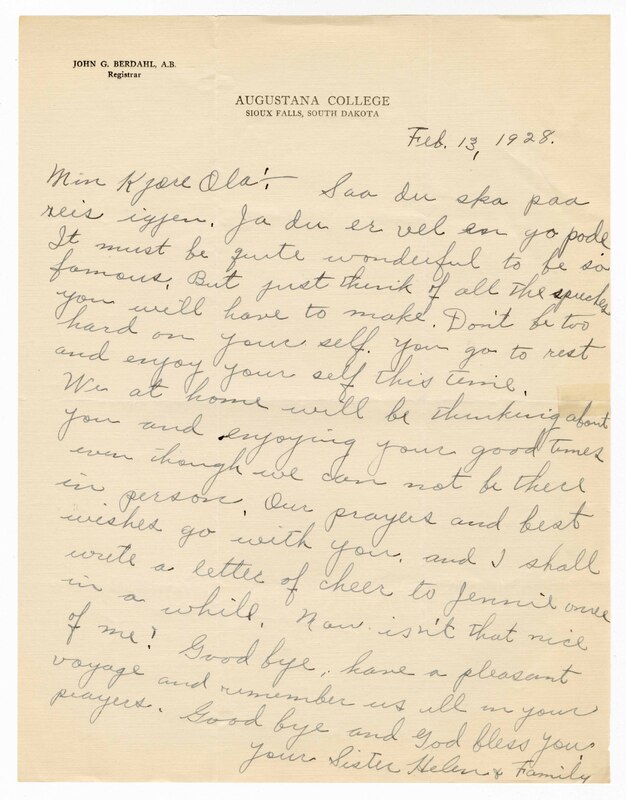 JOHN G. BERDAHL, A.B.
Registrar
AUGUSTANA COLLEGE
SIOUX FALLS, SOUTH DAKOTA
Feb. 13, 1928.
Min Kjære Ola:- Saa du ska paa
reis igjen. Ja du er vel en go pode
It must be quite wonderful to be so
famous. But just think of all the speeches
you will have to make. Don't be too
hard on your self. You go to rest
and enjoy your self this time.
We at home will be thinking about
you and enjoying your good times
even though we can not be there
in person. Our prayers and best
wishes go with you, and I shall
write a letter of cheer to Jennie once
in a while. Now isn't that nice
of me? Good bye, have a pleasant
voyage and remember us all in your
prayers. Good bye and God bless you.
Your Sister Helen & Family